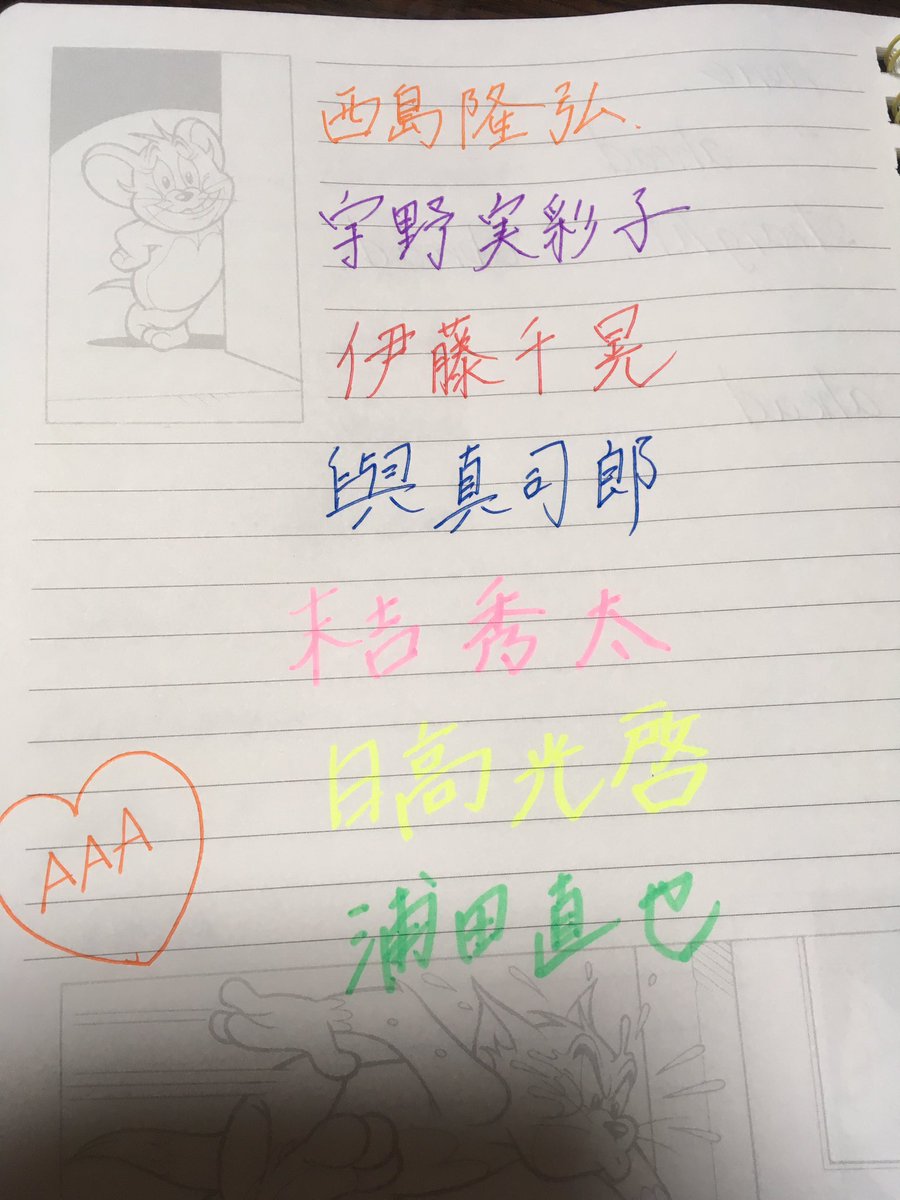 西島隆弘.
宇野実彩子
伊藤千晃
與真司郎
末吉秀太
日高光啓
AAA
浦田直也